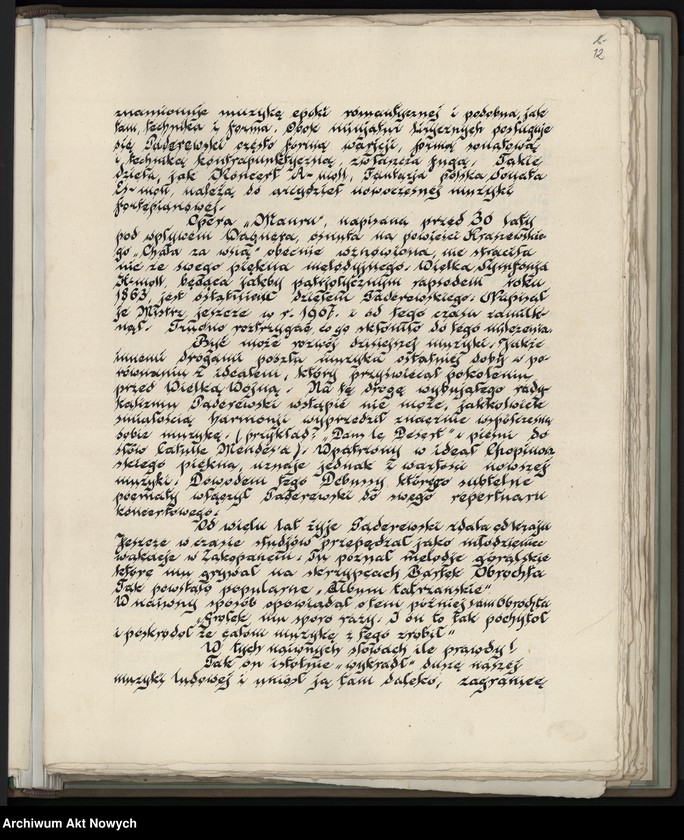 12
znamionuje muzykę epoki romantycznej i podobna, jak
tam, technika i forma. Obok miniatur lirycznych posługuje
się Paderewski często formą warjacji, formą sonatową
i techniką kontrapunktyczną, zwłaszcza fugą. Takie
dzieła, jak Koncert A-moll, Fantazja polska, Sonata
Es-moll, należą do arcydzieł nowoczesnej muzyki
fortepianowej.
Opera „Manru", napisana przed 30 laty
pod wpływem Wagnera, osnuta na powieści Kraszewskie-
go „Chata za wsią" obecnie wznowiona, nie straciła
nic ze swego piękna melodyjnego. Wielka Symfonja
H-moll, będąca jakby patrjotycznym rapsodem roku
1863, jest ostatniem dziełem Paderewskiego. Napisał
je Mistrz jeszcze w r. 1907. i od tego czasu zamilk-
nął. Trudno rozstrzygać co go skłoniło do tego milczenia.
Być może rozwój dzisiejszej muzyki. Jakże
innemi drogami poszła muzyka ostatniej doby w po-
równaniu z ideałem, który przyświecał pokoleniu
przed Wielką Wojną. Na tę drogę wybujałego rady-
kalizmu Paderewski wstąpić nie może, jakkolwiek
śmiałością harmonji wyprzedził znacznie współczesną
sobie muzykę. (przykład: „Dans le Desert" i pieśni do
słów Catulle Mendesa). Wpatrzony w ideał Chopinow-
skiego piękna, uznaje jednak i wartości nowszej
muzyki. Dowodem tego Debussy którego subtelne
poematy włączył Paderewski do swego repertuaru
koncertowego.
Od wielu lat żyje Paderewski zdala od kraju
Jeszcze w czasie studjów przepędzał jako młodzieniec
wakacje w Zakopanem. Tu poznał melodje góralskie
które mu grywał na skrzypcach Bartek Obrochta
Tak powstało popularne „Album tatrzańskie"
W naiwny sposób opowiadał o tem później sam Obrochta
„Grołek mu sporo razy. I on to tak pochytoł
i poskrodoł że całom muzykę z tego zrobił"
W tych naiwnych słowach ile prawdy!
Tak on istotnie „wykradł" duszę naszej
muzyki ludowej i uniósł ją tam daleko, zagranicę
Archiwum Akt Nowych